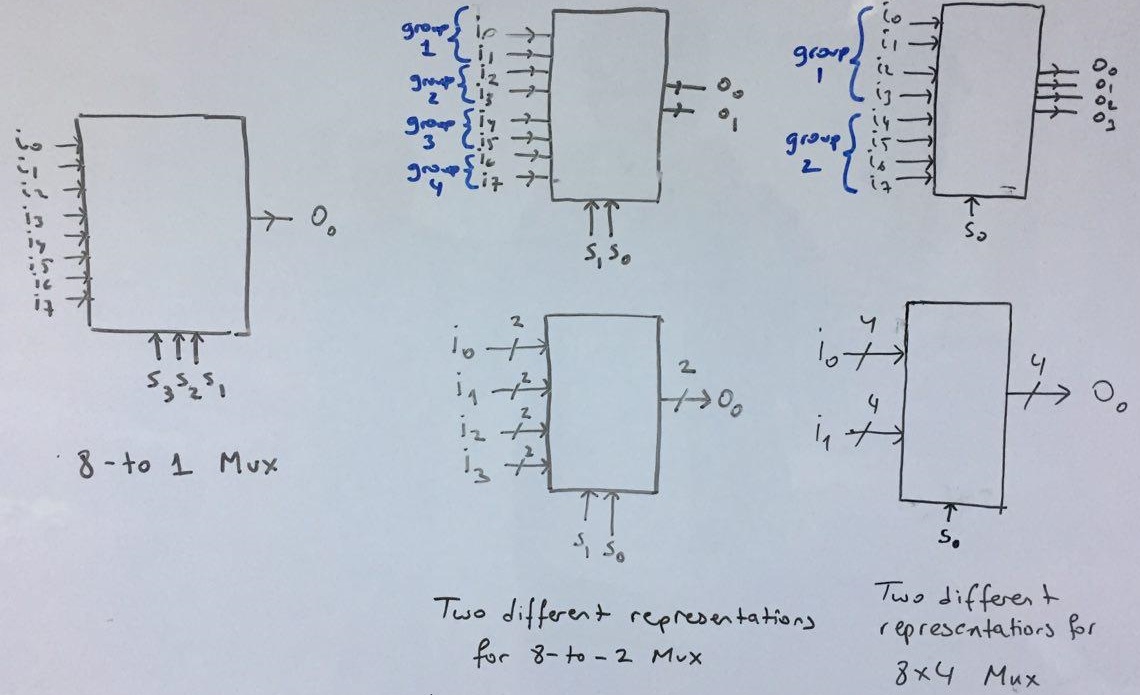 i0
i1
i2
i3
i4
i5
i6
i7
O0
S3 S2 S1
8-to 1 Mux
group
1
group
2
group
3
group
4
i0
i1
i2
i3
i4
i5
i6
i7
O0
O1
S1 S0
i0
2
i1
2
i2
2
i3
2
2
O0
S1 S0
Two different representations
for 8-to-2 Mux
group
1
group
2
i0
i1
i2
i3
i4
i5
i6
i7
O0
O1
O2
O3
S0
i0
4
i1
4
4
O0
S0
Two different
representations for
8x4 Mux